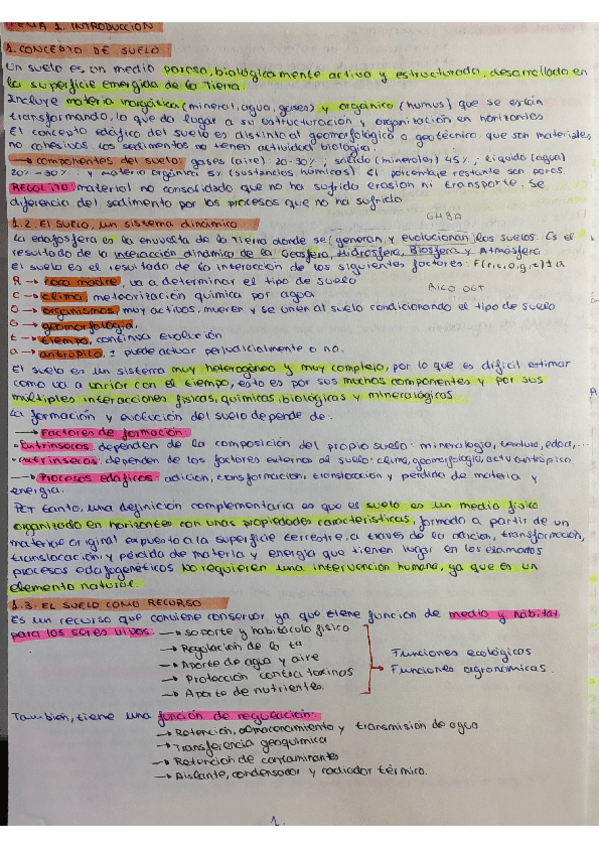 TEMA 1. INTRODUCCIÓN
1. CONCEPTO DE SUELO
Un suelo es un medio poroso, biológicamente activo y estructurado, desarrollado en
la superficie emergida de la Tierra.
Incluye materia inorgánica (mineral, agua, gases) y orgánica (humus) que se están
transformando, lo que da lugar a su estructuración y organización en horizontes
El concepto edáfico del suelo es distinto al geomorfológico o geotécnico, que son materiales
no cohesivos. Los sedimentos no tienen actividad biológica.
→ componentes del suelo: gases (aire) 20-30%, sólido (minerales) 45%, líquido (agua)
20%-30% y materia orgánica 5% (sustancias húmicas). El porcentaje restante son poros.
REGOLITO: material no consolidado que no ha sufrido erosión ni transporte. Se
diferencia del sedimento por los procesos que no ha sufrido.
GHBA
1.2. El suelo, un sistema dinámico
La edafosfera es la envuelta de la Tierra donde se (generan y evolucionan) los suelos. Es el
resultado de la interacción dinámica de la Geosfera, Hidrosfera, Biosfera y Atmósfera
El suelo es el resultado de la interacción de los siguientes factores: F(r,c,o,g,t)±a
R → roca madre, va a determinar el tipo de suelo
C → clima, meteorización química por agua
O → organismos, muy activos, mueren y se unen al suelo condicionando el tipo de suelo
G → geomorfología,
t → tiempo, continua evolución
a → antrópico, ± puede actuar perjudicialmente o no.
El suelo es un sistema muy heterogéneo y muy complejo, por lo que es difícil estimar
como va a variar con el tiempo, esto es por sus muchos componentes y por sus
múltiples interacciones físicas, químicas, biológicas y mineralógicas
La formación y evolución del suelo depende de:
→ Factores de formación:
dependen de la composición del propio suelo: mineralogía, textura, edad,...
dependen de los factores externos al suelo: clima, geomorfología, act. antrópico
→ Procesos edáficos: adición, transformación, translocación y pérdida de materia y
energía.
Por tanto, una definición complementaria es que es suelo es un medio físico
organizado en horizontes con unas propiedades características, formado a partir de un
material original expuesto a la superficie terrestre, a través de la adición, transformación,
translocación y pérdida de materia y energía que tienen lugar en los llamados
procesos edafogenéticos. No requieren una intervención humana, ya que es un
elemento natural.
1.3. EL SUELO COMO RECURSO
Es un recurso que conviene conservar ya que tiene función de medio y hábitat
para los seres vivos:
→ Soporte y habitáculo físico
→ Regulación de la tª
→ Aporte de agua y aire
→ Protección contra toxinas
→ Aporte de nutrientes.
Funciones ecológicas
Funciones agronómicas.
También, tiene una función de regulación:
→ Retención, almacenamiento y transmisión de agua
→ Transferencia geoquímica
→ Retención de contaminantes
→ Aislante, condensador y radiador térmico.
1.